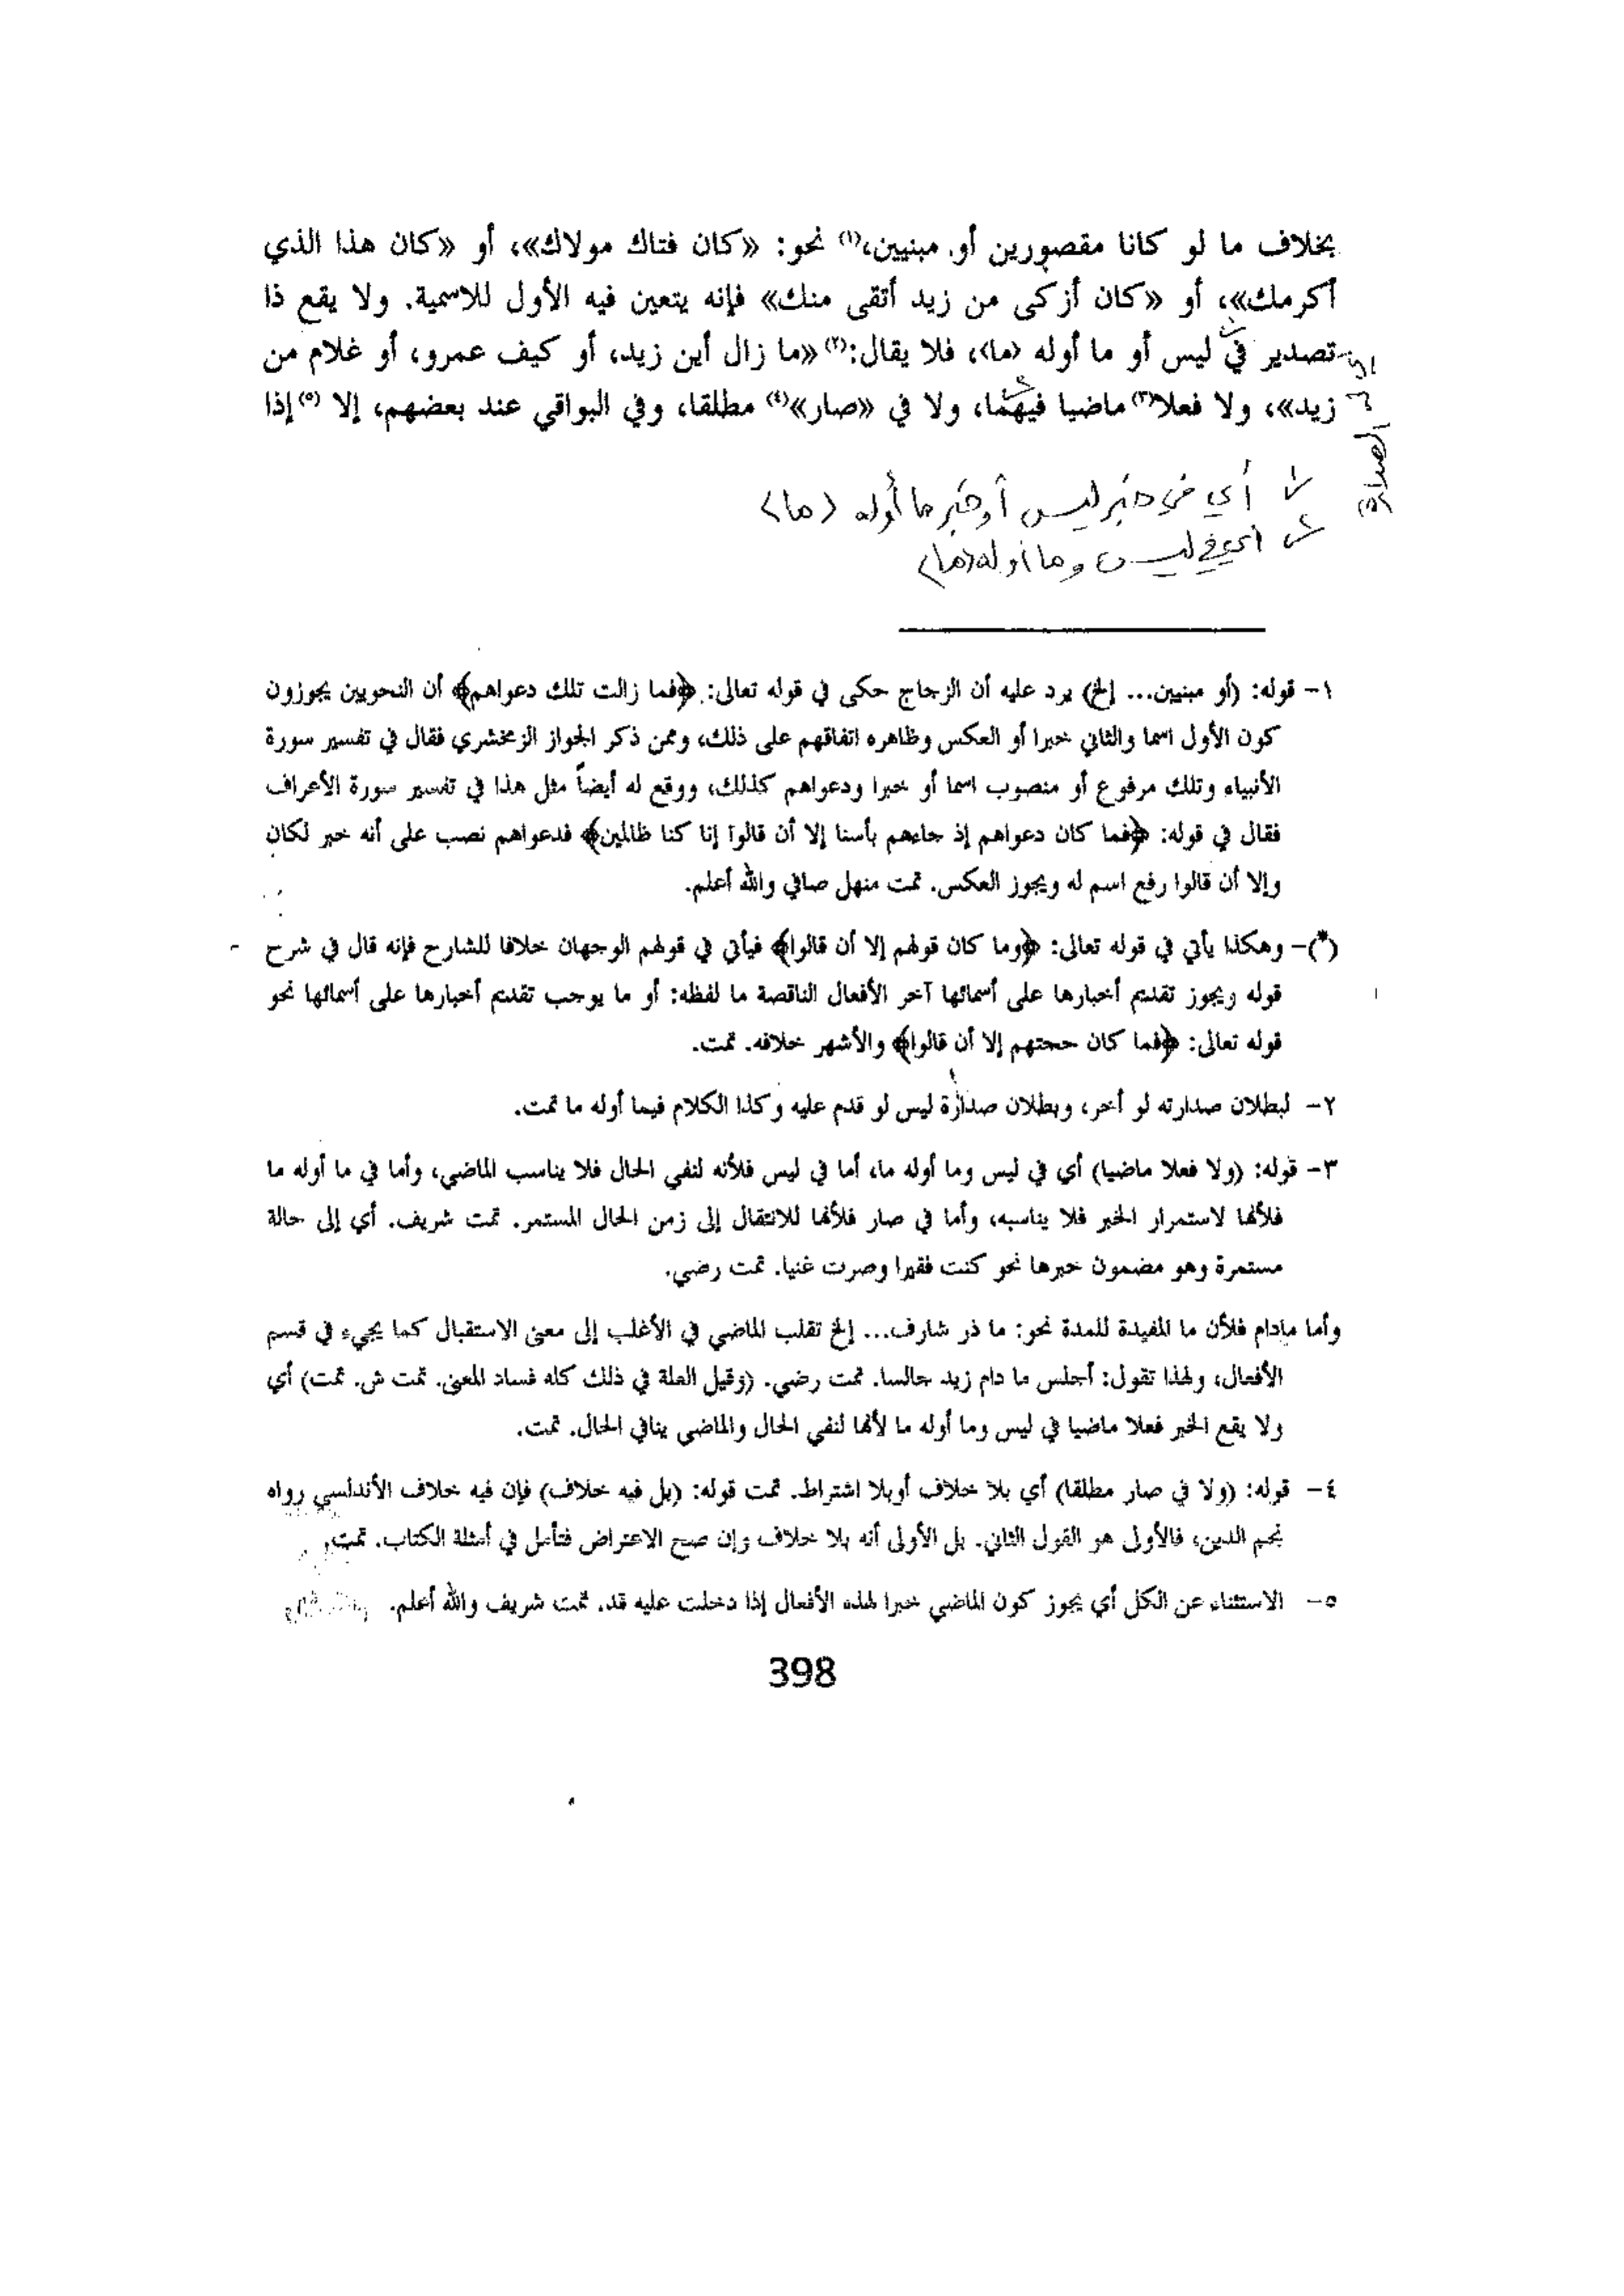 بخلاف ما لو كانا مقصورين أو مبنيين،(١) نحو: «كان فتاك مولاك»، أو «كان هذا الذي
أكرمك»، أو «كان أزكى من زيد أتقى منك» فإنه يتعين فيه الأول للاسمية. ولا يقع ذا
تصدير في ليس أو ما أوله ‹ما›، فلا يقال:(٢) «ما زال أين زيد، أو كيف عمرو، أو غلام من
زيد»، ولا فعلا(٣) ماضيا فيهما، ولا في «صار»(٤) مطلقا، وفي البواقي عند بعضهم، إلا (٥) إذا
الصدارة
أي في خبر ليس أو خبر ما أوله ‹ما›
أي في ليس وما أوله ‹ما›
١- قوله: (أو مبنيين... إلخ) يرد عليه أن الزجاج حكى في قوله تعالى: ﴿فما زالت تلك دعواهم﴾ أن النحويين يجوزون
كون الأول اسما والثاني خبرا أو العكس وظاهره اتفاقهم على ذلك، وممن ذكر الجواز الزمخشري فقال في تفسير سورة
الأنبياء وتلك مرفوع أو منصوب اسما أو خبرا ودعواهم كذلك، ووقع له أيضاً مثل هذا في تفسير سورة الأعراف
فقال في قوله: ﴿فما كان دعواهم إذ جاءهم بأسنا إلا أن قالوا إنا كنا ظالمين﴾ فدعواهم نصب على أنه خبر لكان
وإلا أن قالوا رفع اسم له ويجوز العكس. تمت منهل صافي والله أعلم.
(*)- وهكذا يأتي في قوله تعالى: ﴿وما كان قولهم إلا أن قالوا﴾ فيأتي في قولهم الوجهان خلافا للشارح فإنه قال في شرح
قوله ويجوز تقديم أخبارها على أسمائها آخر الأفعال الناقصة ما لفظه: أو ما يوجب تقديم أخبارها على أسمائها نحو
قوله تعالى: ﴿فما كان حجتهم إلا أن قالوا﴾ والأشهر خلافه. تمت.
٢- لبطلان صدارته لو أخر، وبطلان صدارة ليس لو قدم عليه وكذا الكلام فيما أوله ما تمت.
٣- قوله: (ولا فعلا ماضيا) أي في ليس وما أوله ما، أما في ليس فلأنه لنفي الحال فلا يناسب الماضي، وأما في ما أوله ما
فلأنها لاستمرار الخبر فلا يناسبه، وأما في صار فلأنها للانتقال إلى زمن الحال المستمر. تمت شريف. أي إلى حالة
مستمرة وهو مضمون خبرها نحو كنت فقيرا وصرت غنيا. تمت رضي.
وأما مادام فلأن ما المفيدة للمدة نحو: ما ذر شارف... إلخ تقلب الماضي في الأغلب إلى معنى الاستقبال كما يجيء في قسم
الأفعال، ولهذا تقول: أجلس ما دام زيد جالسا. تمت رضي. (وقيل العلة في ذلك كله فساد المعنى. تمت ش. تمت) أي
ولا يقع الخبر فعلا ماضيا في ليس وما أوله ما لأنها لنفي الحال والماضي ينافي الحال. تمت.
٤- قوله: (ولا في صار مطلقا) أي بلا خلاف أوبلا اشتراط. تمت قوله: (بل فيه خلاف) فإن فيه خلاف الأندلسي رواه
نجم الدين، فالأولى هو القول الثاني. بل الأولى أنه بلا خلاف وإن صح الاعتراض فتأمل في أمثلة الكتاب. تمت.
٥- الاستثناء عن الكل أي يجوز كون الماضي خبرا لهذه الأفعال إذا دخلت عليه قد. تمت شريف والله أعلم.
398